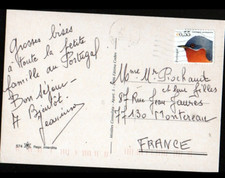 Grosses bises
à toute la petite
famille du Portugal
Bon séjour
A Bientôt.
Jeannine
0,55
Mme Mr Pochayet
et leur filles
87 Rue Jean Jaurès
77130 Montereau
FRANCE